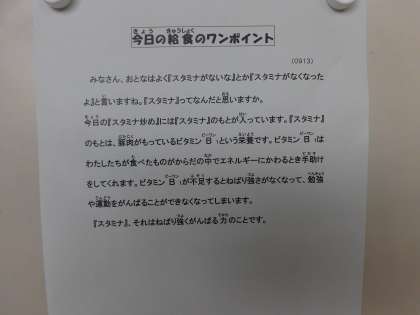 今日の給食のワンポイント
(0913)
みなさん、おとなはよく『スタミナがないな』とか『スタミナがなくなった
よ』と言いますね。『スタミナ』ってなんだと思いますか。
今日の『スタミナ炒め』には『スタミナ』のもとが入っています。『スタミナ』
のもとは、豚肉がもっているビタミンB1という栄養です。ビタミンB1は
わたしたちが食べたものがからだの中でエネルギーにかわるとき手助け
をしてくれます。ビタミンB1が不足するとねばり強さがなくなって、勉強
や運動をがんばることができなくなってしまいます。
『スタミナ』、それはねばり強くがんばる力のことです。